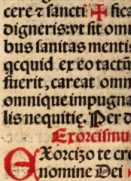 cere ⁊ sancti ✠ fic
digneris: vt sit om
bus sanitas menti
qcquid ex eo tactū
fuerit, careat omn
omnique impugna
lis nequitię. Per D
Exorcismu
EXorcizo te cr
nomine Dei